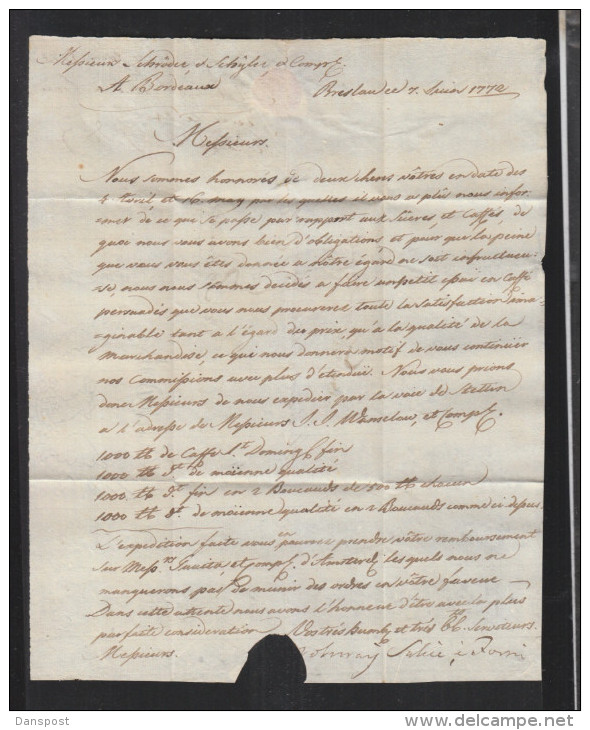 Messieurs Schröder & Schÿler & Comp.
A Bordeaux
Breslau ce 7. Juin 1772
Messieurs.
Nous sommes honnorés de deux chers vôtres en date des
4 Avril et 16. may par les quelles il vous a plû nous infor-
mer de ce que se passe par rapport aux Sucres, et Caffés, de
quoi nous vous avons bien d'obligations et pour que la peine
que vous vous êtes donnée a nôtre égard ne soit infructueu-
se, nous nous sommes decidés a faire un petit essai en Caffé
persuadés que vous nous procurerez toute la satisfaction ima-
ginable tant a l'égard des prix, qu'a la qualité de la
Marchandise, ce qui nous donnera motif de vous continuer
nos Commissions avec plus d'etenduë. Nous vous prions
donc Messieurs de nous expedier par la voie de Stettin
a l'adresse de Messieurs J. J. et Comp.
1000 lb de Caffé St. Doming fin
1000 lb do. de moïenne qualité
1000. lb do. fin en 2 Boucauds de 500 lb chacun
1000 lb do. de moïenne qualité en 2 Boucauds comme ci dessus
L'expedition faite vous en pourrez prendre vôtre remboursement
sur Messrs. et comp. d'Amsterd. les quels nous ne
manquerons pas de munir des ordres en vôtre faveur
Dans cette attente nous avons l'honneur d'être avec la plus
parfaite consideration Vos trés humb. et trés Ob. Serviteurs.
Messieurs.
Danspost
www.delcampe.net